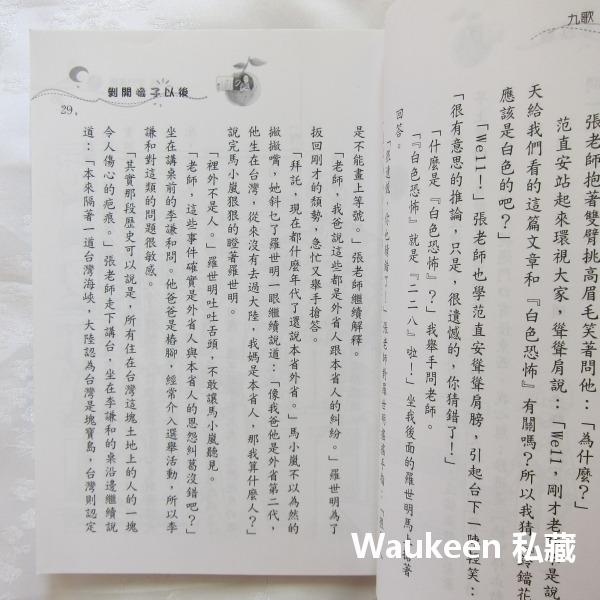 九歌
張老師抱著雙臂挑高眉毛笑著問他：「為什麼？」
范直安站起來環視大家，聳聳肩說：「Well，剛才老師不是說
天給我們看的這篇文章和『白色恐怖』有關嗎？所以我猜鈴鐺花
應該是白色的吧？」
「Well！」張老師也學范直安聳聳肩膀，引起台下一陣輕笑：
「很有意思的推論，只是，很遺憾的，你猜錯了！」
「什麼是『白色恐怖』？」我舉手問老師。
「『白色恐怖』就是『二二八』啦！」坐我後面的羅世明馬上
回答。
剝開橘子以後
29
是不能畫上等號。」張老師繼續解釋。
「老師，我爸說這些都是外省人跟本省人的糾紛。」羅世明為了
扳回剛才的頹勢，急忙又舉手搶答。
「拜託，現在都什麼年代了還說本省外省。」馬小嵐不以為然的
撇撇嘴，她斜乜了羅世明一眼繼續說道：「像我爸他是外省第二代，
他生在台灣，從來沒有去過大陸，我媽是本省人，那我算什麼人？」
說完馬小嵐狠狠的瞪著羅世明。
「裡外不是人。」羅世明吐吐舌頭，不敢讓馬小嵐聽見。
「老師，這些事件確實是外省人與本省人的恩怨糾葛沒錯吧？」
坐在講桌前的李謙和問。他爸爸是樁腳，經常介入選舉活動，所以李
謙和對這類的問題很敏感。
「其實那段歷史可以說是，所有住在台灣這塊土地上的人的一塊
令人傷心的疤痕。」張老師走下講台，坐在李謙和的桌沿邊繼續說
道：「本來隔著一道台灣海峽，大陸認為台灣是塊寶島，台灣則認定
Waukeen 私藏